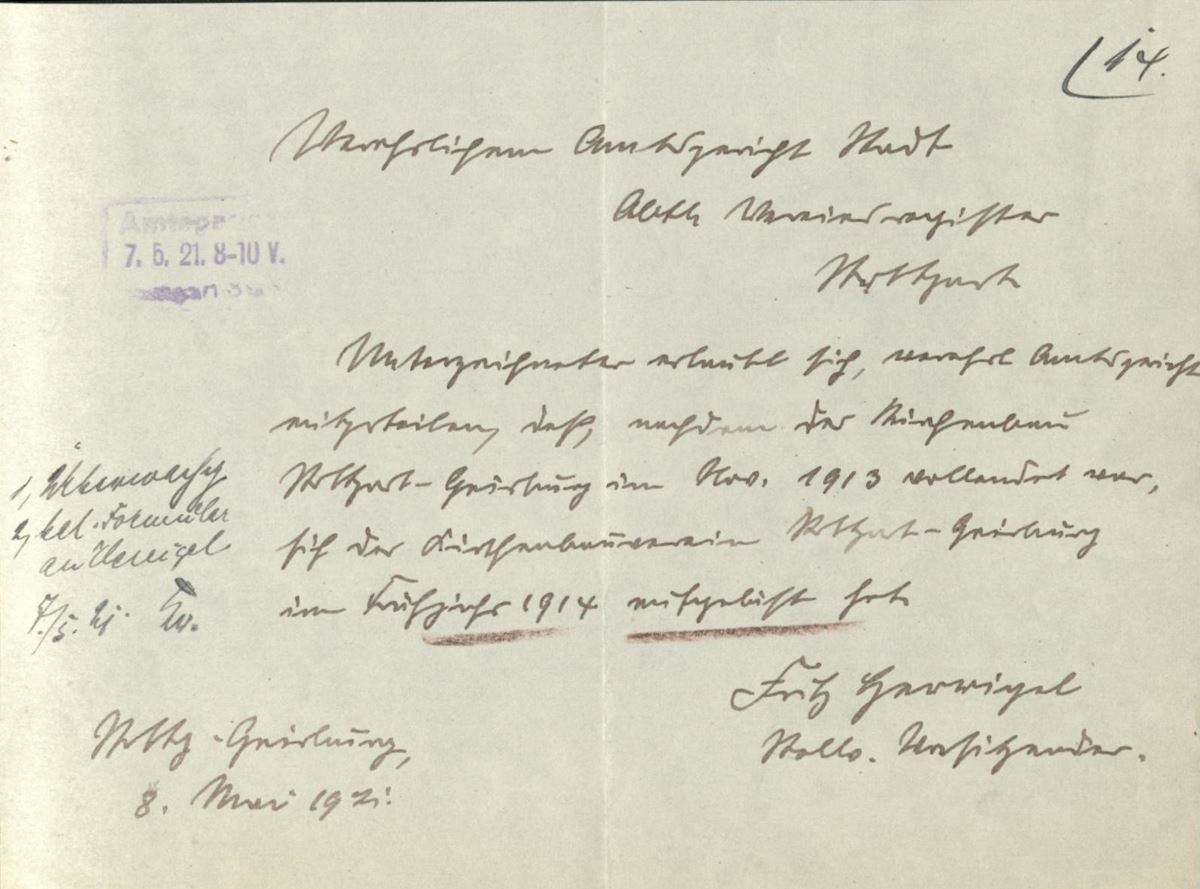 14.
Verehrlichem Amtsgericht Stadt
Abtlg Vereinsregister
Stuttgart
7. 5. 21. 8-10 V.
Unterzeichneter erlaubt sich, verehrl Amtsgericht
mitzuteilen, daß, nachdem der Kirchenbau
Stuttgart-Gaisburg im Nov. 1913 vollendet war,
sich der Kirchenbauverein Stuttgart-Gaisburg
im Frühjahr 1914 aufgelöst hat.
Fritz Herwigel
Stellv. Vorsitzender.
Stuttg-Gaisburg,
8. Mai 1921.
1,
2, Formular
an
7./5. 21.